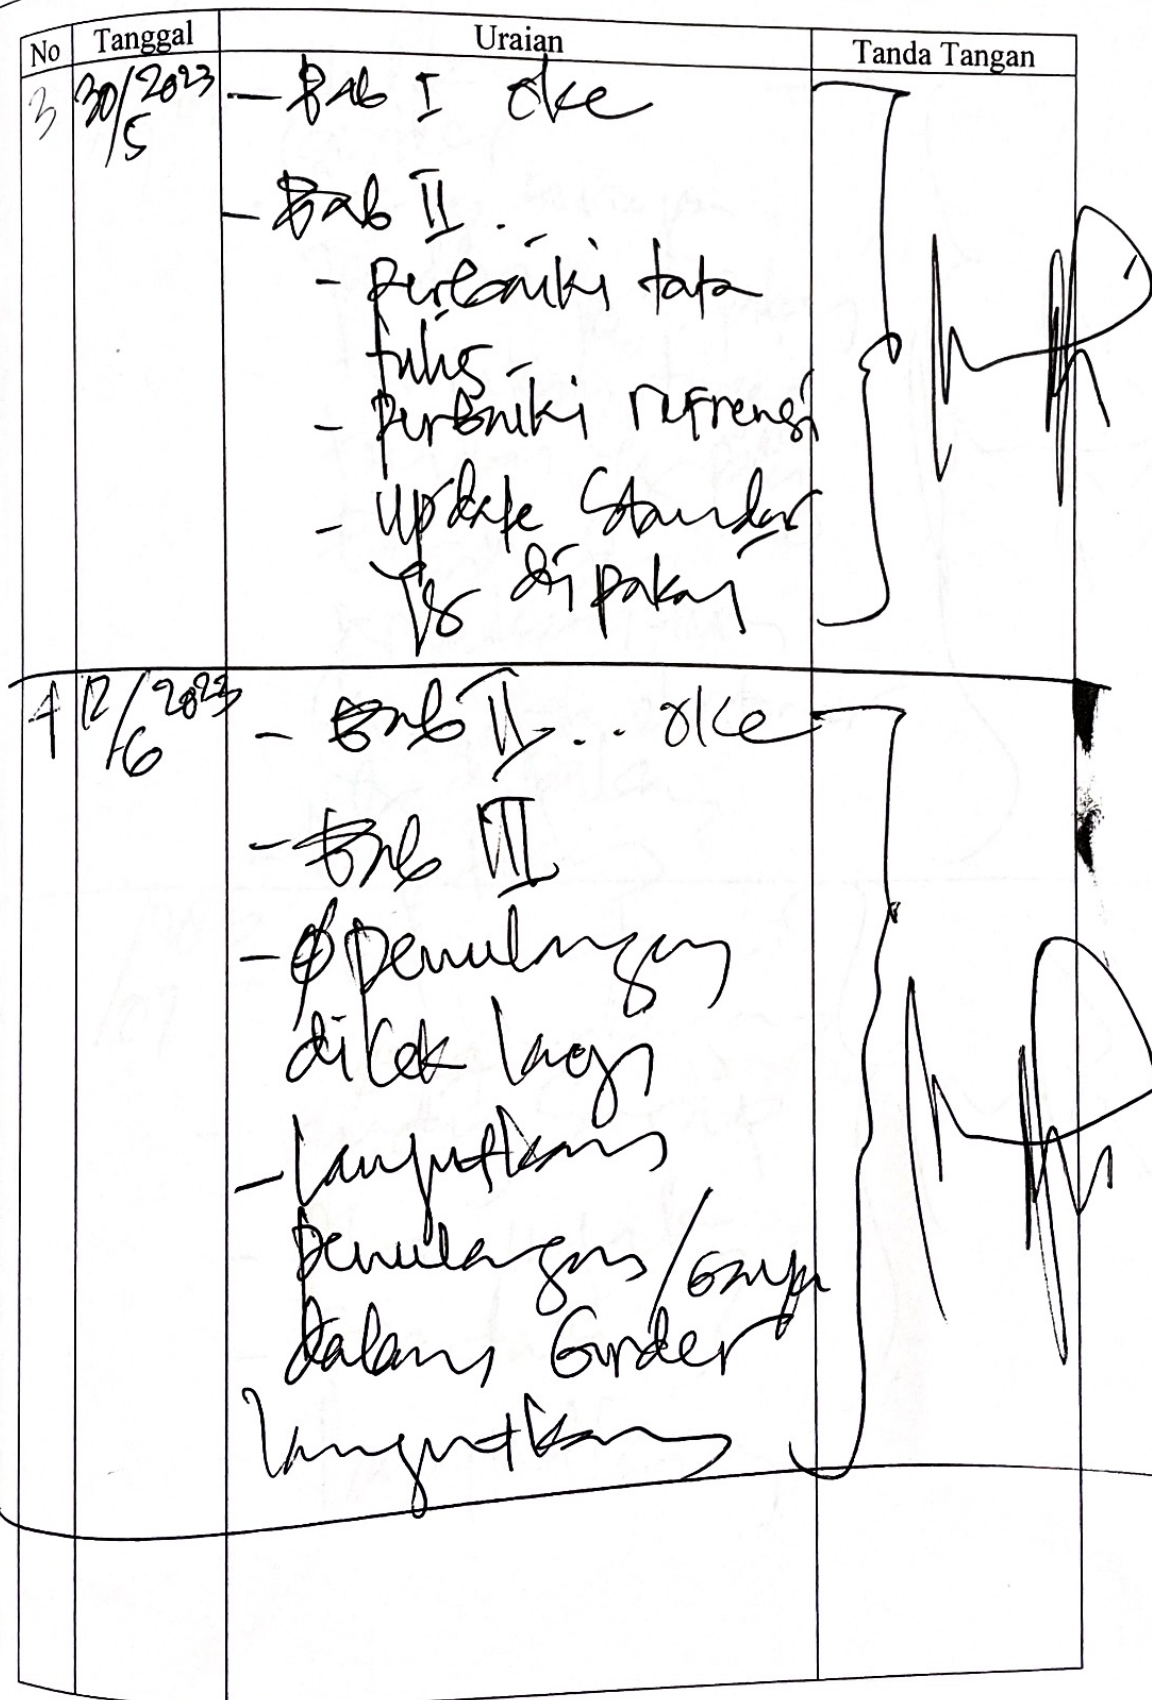 No Tanggal Uraian Tanda Tangan
3 30/5 2023 - Bab I oke
- Bab II .
- Perbaiki tata
tulis
- Perbaiki refrensi
- Update Standar
yg dipakai
4 12/6 2023 - Bab II . . oke
- Bab III
- ϕ penulangan
dicek lagi
- Lanjutkan
penulangan /
dalam Girder
lanjutkan